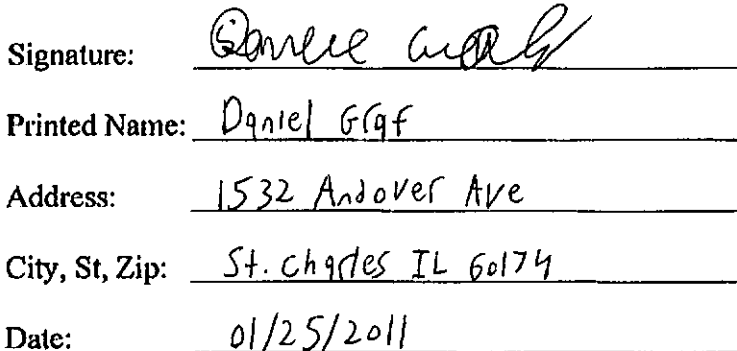 Signature:
Printed Name: Daniel Graf
Address: 1532 Andover Ave
City, St, Zip: St. Charles IL 60174
Date: 01/25/2011